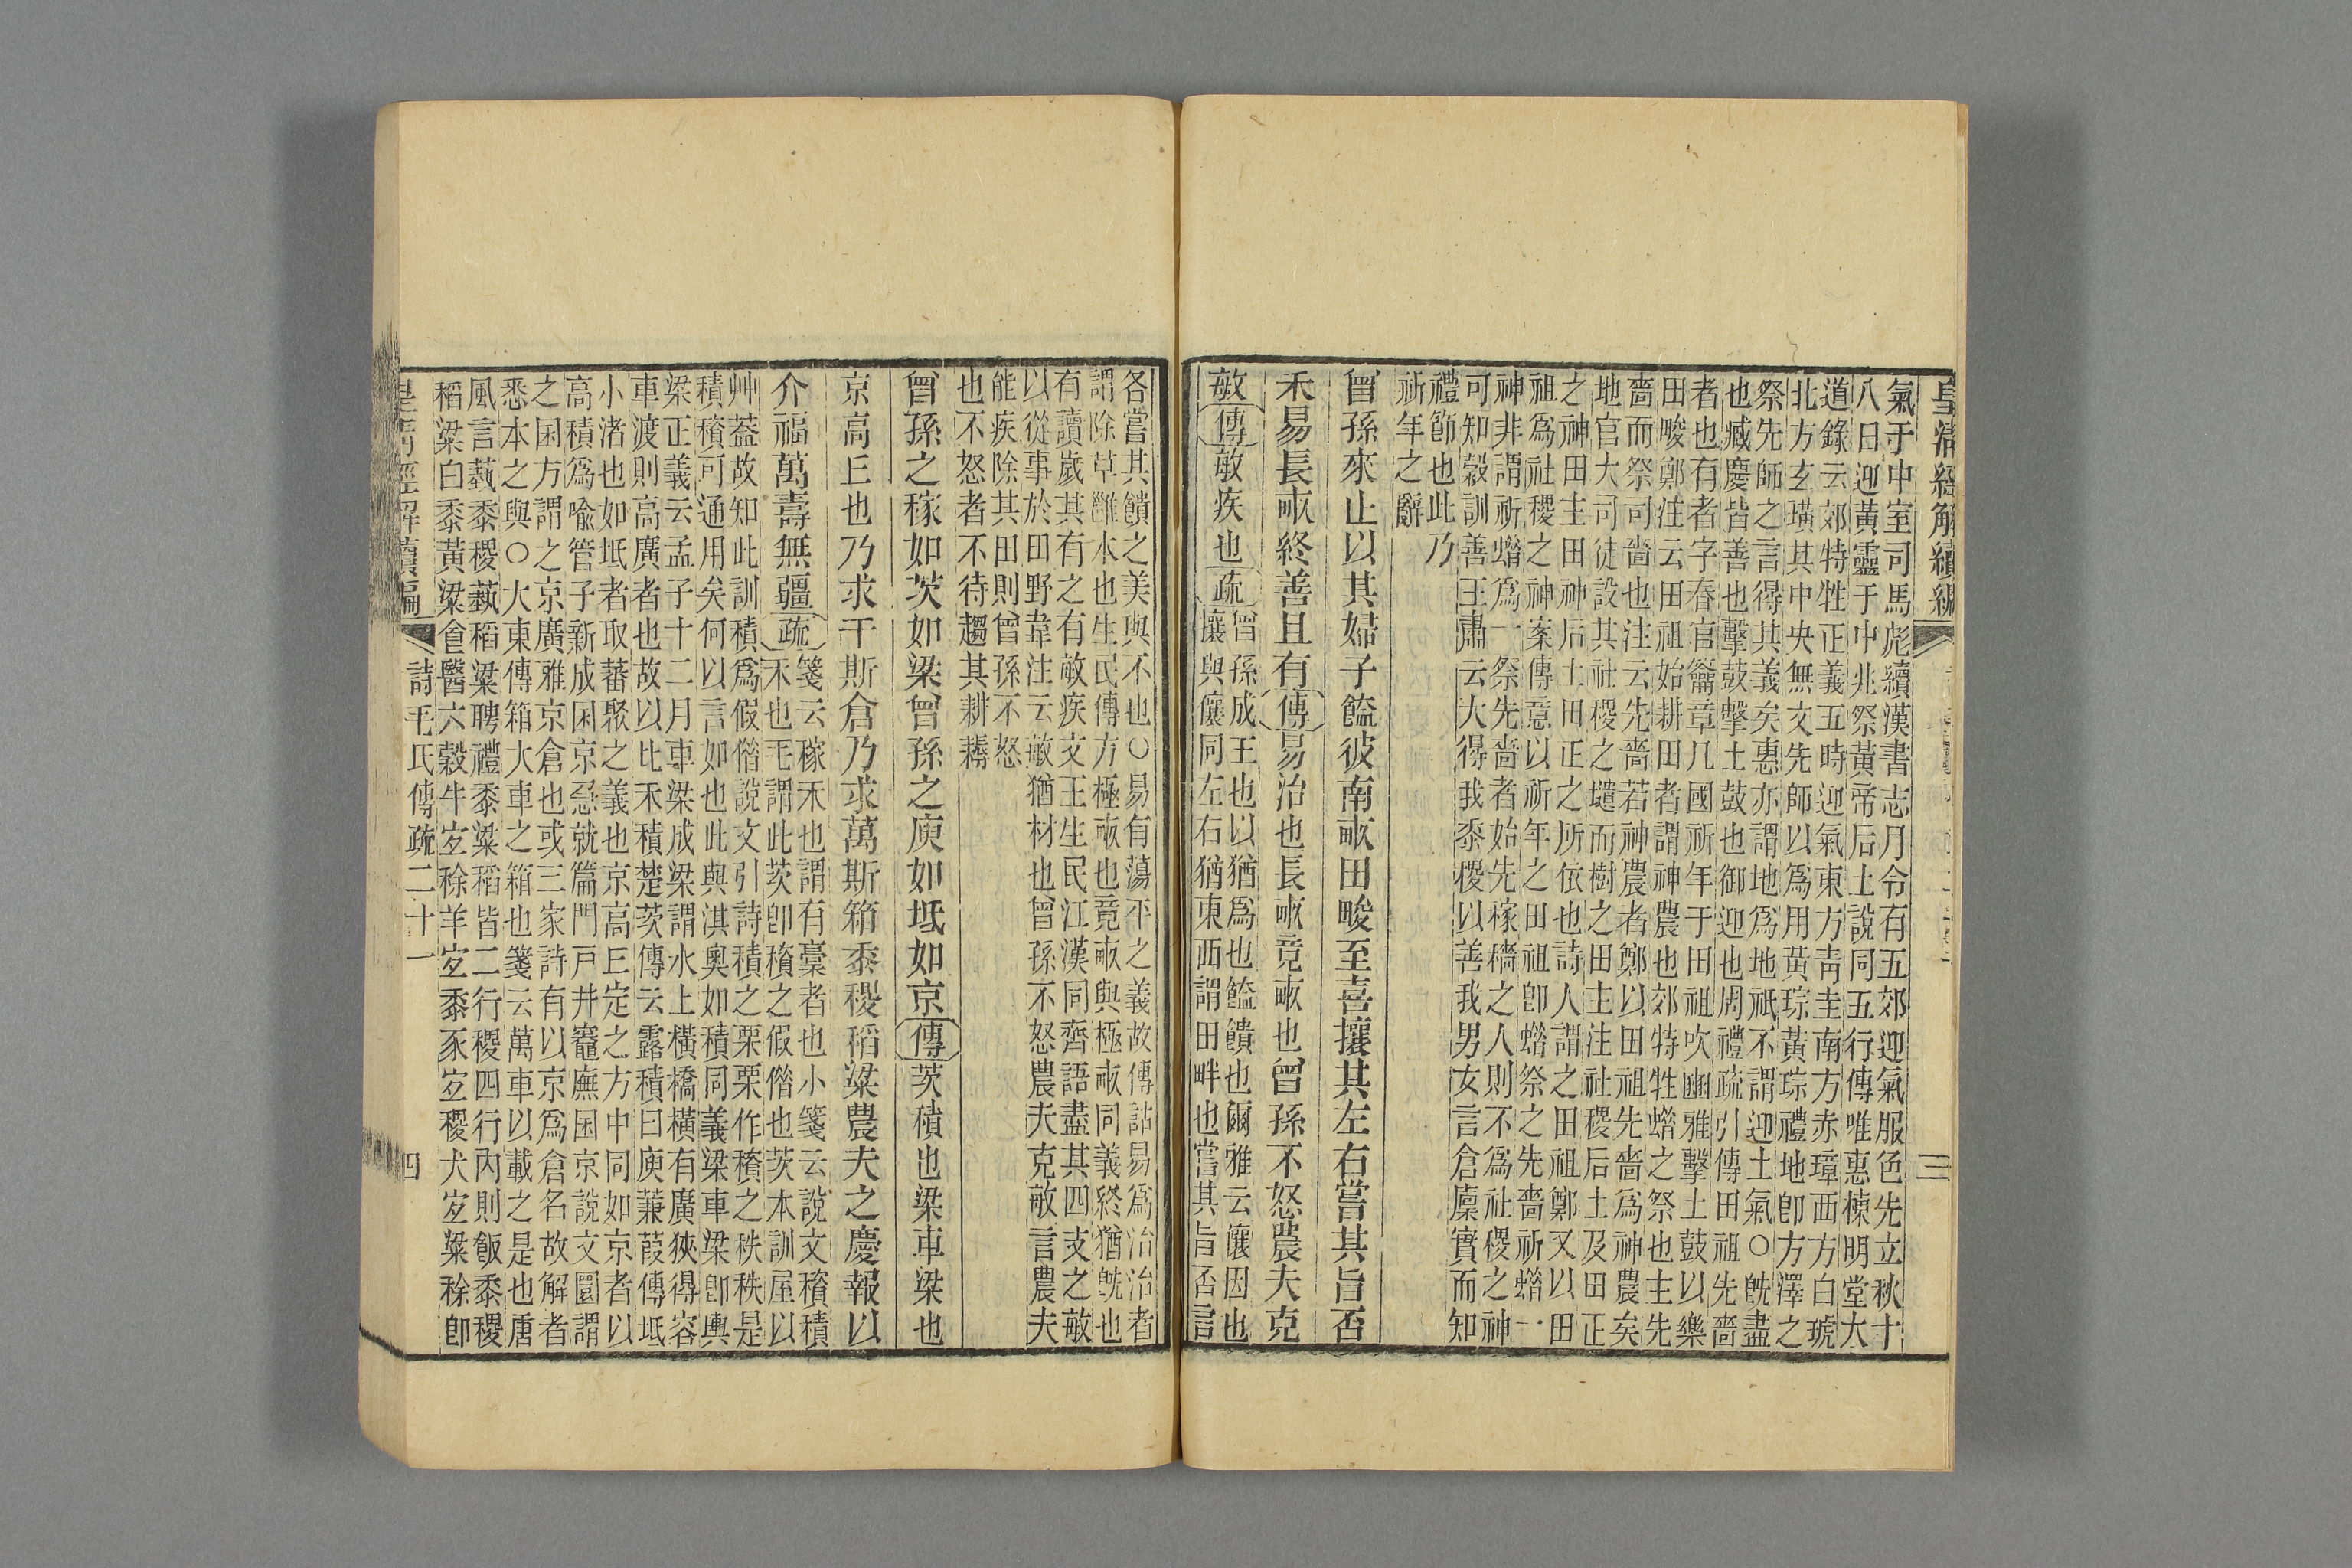 皇清經解續編
三
氣于中室司馬彪續漢書志月令有五郊迎氣服色先立秋十
八日迎黃靈于中兆祭黃帝后土說同五行傳唯惠棟明堂大
道錄云郊特牲正義五時迎氣東方青圭南方赤璋西方白琥
北方玄璜其中央無文先師以爲用黃琮黃琮禮地卽方澤之
祭先師之言得其義矣惠亦謂地爲地祇不謂迎土氣○旣盡
也臧慶皆善也擊鼓擊土鼓也御迎也周禮疏引傳田祖先嗇
者也有者字春官籥章凡國祈年于田祖吹豳雅擊土鼓以樂
田畯鄭注云田祖始耕田者謂神農也郊特牲蜡之祭也主先
嗇而祭司嗇也注云先嗇若神農者鄭以田祖先嗇爲神農矣
地官大司徒設其社稷之壝而樹之田主注社稷后土及田正
之神田主田神后土田正之所依也詩人謂之田祖鄭又以田
祖爲社稷之神案傳意以祈年之田祖卽蜡祭之先嗇祈蜡一
神非謂祈蜡爲一祭先嗇者始先稼穡之人則不爲社稷之神
可知穀訓善王肅云大得我黍稷以善我男女言倉廩實而知
禮節也此乃
祈年之辭
曾孫來止以其婦子饁彼南畝田畯至喜攘其左右嘗其旨否
禾易長畝終善且有傳易治也長畝竟畝也曾孫不怒農夫克
敏傳敏疾也疏曾孫成王也以猶爲也饁饋也爾雅云儴因也
攘與儴同左右猶東西謂田畔也嘗其旨否言
各嘗其饋之美與不也○易有蕩平之義故傳詁易爲治治者
謂除草雝本也生民傳方極畝也竟畝與極畝同義終猶旣也
有讀歲其有之有敏疾文王生民江漢同齊語盡其四支之敏
以從事於田野韋注云敏猶材也曾孫不怒農夫克敏言農夫
能疾除其田則曾孫不怒
也不怒者不待趨其耕耨
曾孫之稼如茨如梁曾孫之庾如坻如京傳茨積也梁車梁也
京高㠀也乃求千斯倉乃求萬斯箱黍稷稻粱農夫之慶報以
介福萬壽無疆疏箋云稼禾也謂有藁者也小箋云說文䅣積
禾也毛謂此茨卽䅣之假偕也茨本訓屋以
艸葢故知此訓積爲假偕說文引詩積之栗栗作䅣之秩秩是
積䅣可通用矣何以言如也此與淇奧如積同義梁車梁卽輿
梁正義云孟子十二月車梁成梁謂水上橫橋橫有廣狹得容
車渡則高廣者也故以比禾積楚茨傳云露積曰庾蒹葭傳坻
小渚也如坻者取蕃聚之義也京高㠀定之方中同如京者以
高積爲喩管子新成囷京急就篇門戸井竈廡囷京說文圜謂
之囷方謂之京廣雅京倉也或三家詩有以京爲倉名故解者
悉本之與○大東傳箱大車之箱也箋云萬車以載之是也唐
風言蓺黍稷蓺稻粱聘禮黍粱稻皆二行稷四行內則飯黍稷
稻粱白黍黃粱食醫六穀牛宜稌羊宜黍豕宜稷犬宜粱稌卽
皇清經解續編
詩毛氏傳疏二十一
四